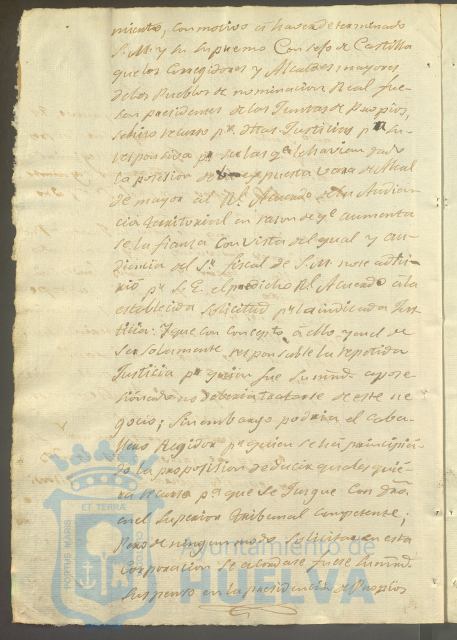 miento, con motivo de haver determinado
S. M. y su Supremo Consejo de Castilla
que los Corregidores y Alcaldes mayores
de los Pueblos de nominacion Real fue-
sen presidentes de las Juntas de Propios,
se hizo recurso pr. dhas Justicias pr. su
responsiva pr. ser las qe. le havian dado
la posesion de la expuesta vara de Alcal
de mayor al Rl. Acuerdo de su Audien-
cia territorial en razon de qe. aumenta
se la fianza con vista del qual y au-
diencia del Sr. fiscal de S. M. no se adhi-
rio pr. S. E. el predicho Rl. Acuerdo a la
establecida solicitud pr. la indicada Jus-
ticia: Y que con concepto a ello, y a el de
ser solamente responsable la repetida
Justicia pr. quien fue su md. apose-
sionado no deberia tratarse de este ne-
gocio; sin embargo podria el Caba-
llero Regidor pr. quien se ha principia-
do la proposicion deducir qualesquie-
ra recurso pa. que se Juzgue con dro.
en el Superior tribunal competente;
Pero de ningun modo solicitar en esta
Corporacion se acordase fuese su md.
suspenso en la presidencia de Propios
PORTUS MARIS ET TERRÆ
Ayuntamiento de
HUELVA